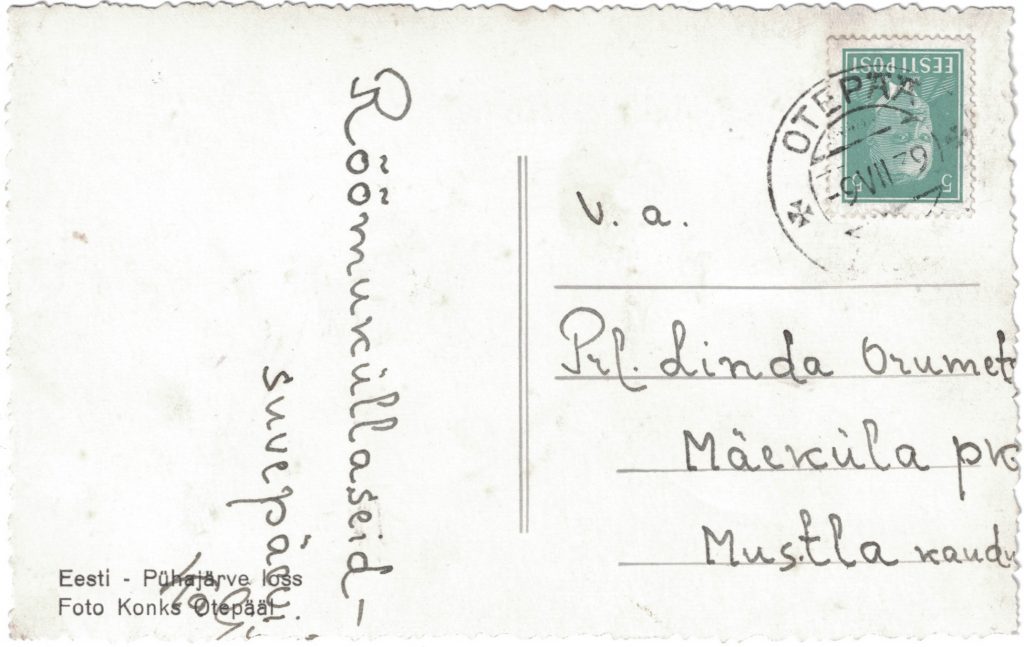 Rõõmuküllaseid-
suvepäevi.
Eesti - Pühajärve loss
Foto Konks Otepääl
EESTI POST
5 5
OTEPÄÄ
-9 VII 39
V. a.
Prl. Linda Orumet
Mäeküla pk
Mustla kaudu